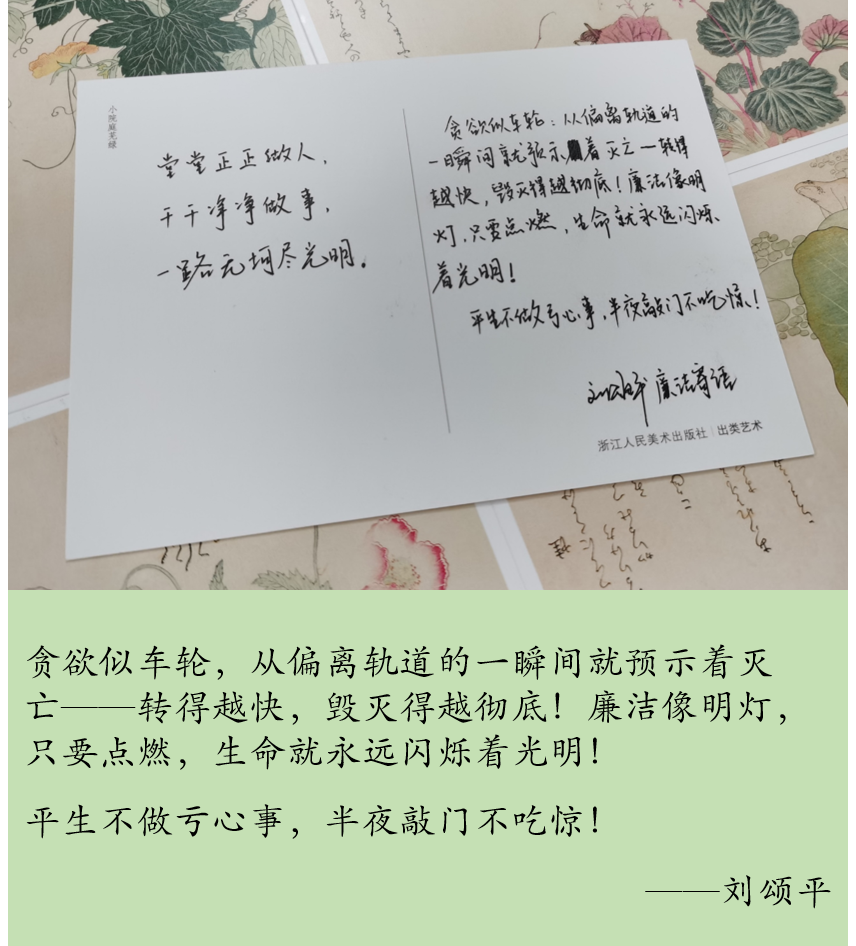 小院庭芜绿
堂堂正正做人，
干干净净做事，
一路无坷尽光明。
贪欲似车轮：从偏离轨道的
一瞬间就预示着灭亡一转得
越快，毁灭得越彻底！廉洁像明
灯，只要点燃，生命就永远闪烁
着光明！
平生不做亏心事，半夜敲门不吃惊！
刘颂平 廉洁寄语
浙江人民美术出版社 | 出类艺术
贪欲似车轮，从偏离轨道的一瞬间就预示着灭
亡——转得越快，毁灭得越彻底！廉洁像明灯，
只要点燃，生命就永远闪烁着光明！
平生不做亏心事，半夜敲门不吃惊！
——刘颂平